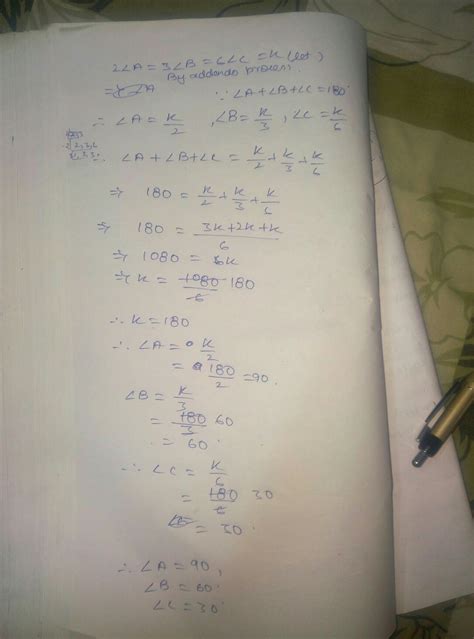 2∠A = 3∠B = 6∠C = K (let)
By addendo process.
∵ ∠A+∠B+∠C = 180
∴ ∠A = K/2 , ∠B = K/3 , ∠C = K/6
∴ ∠A+∠B+∠C = K/2 + K/3 + K/6
⇒ 180 = K/2 + K/3 + K/6
⇒ 180 = 3K+2K+K/6
⇒ 1080 = 6K
⇒ K = 1080/6 180
∴ K = 180
∴ ∠A = K/2
= 180/2 = 90.
∠B = K/3
= 180/3 60
= 60.
∴ ∠C = K/6
= 180/6 30
= 30.
∴ ∠A = 90,
∠B = 60.
∠C = 30.